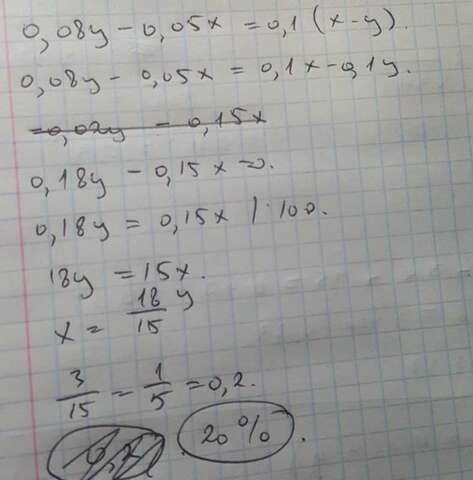 0,08y - 0,05x = 0,1 (x-y).
0,08y - 0,05x = 0,1x - 0,1y.
-0,02y - 0,15x
0,18y - 0,15x = 0.
0,18y = 0,15x | · 100.
18y = 15x.
x = \frac{18}{15} y
\frac{3}{15} = \frac{1}{5} = 0,2.
20%.